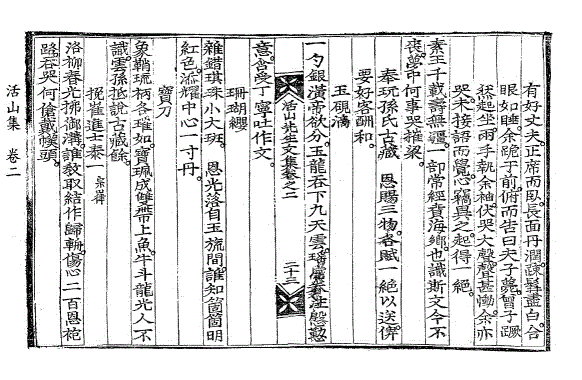 有好丈夫正席而臥長面丹潤疎髥盡白合
眼如睡余跪于前俯而告曰夫子薨曾子蹶
然起坐兩手執余袖伏哭大聲聲甚慟余亦
哭未接語而覺心竊異之起得一絶
素王千載壽無疆一部常經賁海鄕也識斯文今不
喪夢中何事哭摧樑
奉玩孫氏古藏 恩賜三物各賦一絶以送俾
要好客酬和
玉硯滴
一勺銀潢帝欲分玉龍呑下九天雲瑞春注慇懃
活山先生文集卷之二 二十三
意含受丁寧吐作文
珊瑚纓
雜錯琪珠小大斑 恩光落自玉旒間誰知箇箇明
紅色添耀中心一寸丹
寶刀
象鞘琉柄各璀如寶珮成雙帶上魚牛斗龍光人不
識雲孫抵說古藏餘
挽崔進士泰一
洛柳春光拂御溝誰敎取結作歸輈傷心二百恩袍
路呑哭何傖戴幞頭
活山集 卷二